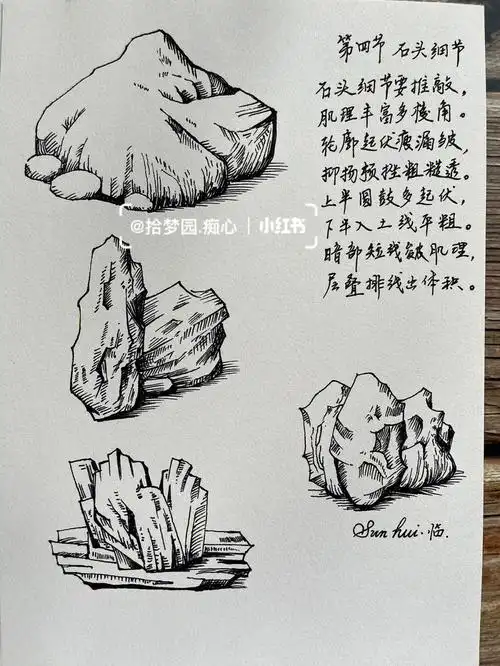 第四节 石头细节
石头细节要推敲,
肌理丰富多棱角。
轮廓起伏瘦漏皱,
抑扬顿挫粗糙透。
上半圆鼓多起伏,
下半入土线平粗。
暗部短线皴肌理,
层叠排线出体积。
@拾梦园.痴心 | 小红书
Sun hui.临.